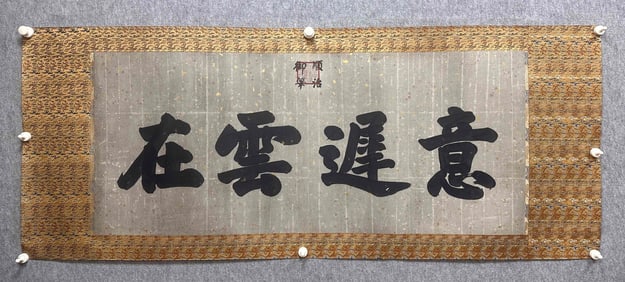 順治
御筆
意遲雲在